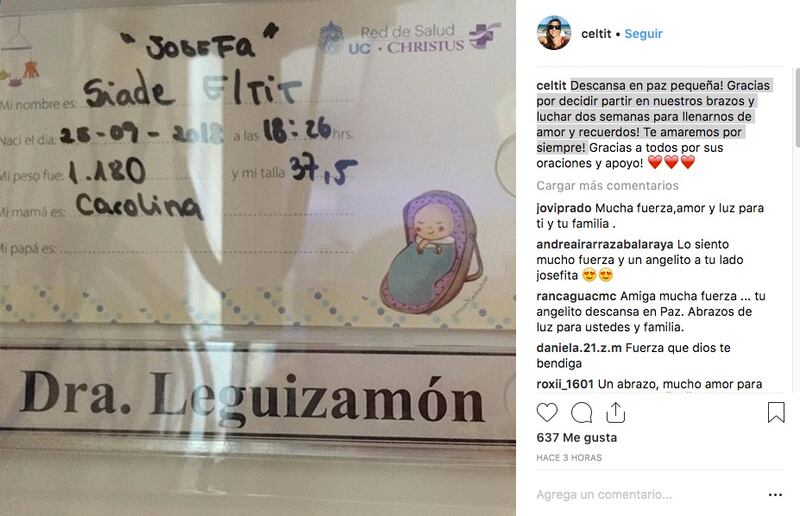 "JOSEFa"
Red de Salud
UC · CHRISTUS
Mi nombre es: Siade ElTiT
Nací el día: 25-09-2018 a las 18:26 hrs.
Mi peso fue: 1.180 y mi talla 37,5
Mi mamá es: Carolina
Mi papá es:
Dra. Leguizamón
celtit • Seguir
celtit Descansa en paz pequeña! Gracias
por decidir partir en nuestros brazos y
luchar dos semanas para llenarnos de
amor y recuerdos! Te amaremos por
siempre! Gracias a todos por sus
oraciones y apoyo! ❤️❤️❤️
Cargar más comentarios
joviprado Mucha fuerza,amor y luz para
ti y tu familia .
andreairarrazabalaraya Lo siento
mucho fuerza y un angelito a tu lado
josefita 😍😍
rancaguacmc Amiga mucha fuerza ... tu
angelito descansa en Paz. Abrazos de
luz para ustedes y familia.
daniela.21.z.m Fuerza que dios te
bendiga
roxii_1601 Un abrazo, mucho amor para
637 Me gusta
HACE 3 HORAS
Agrega un comentario...